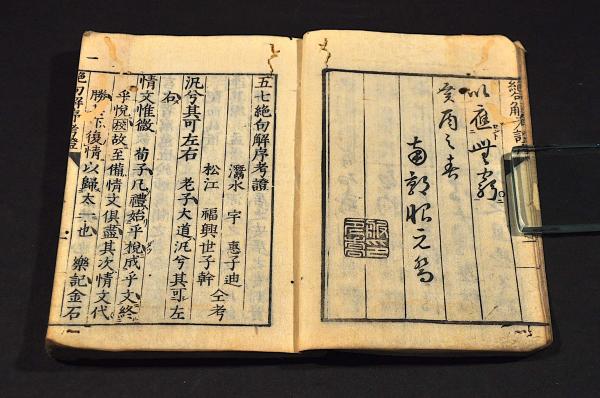 以應無窮
癸酉之春
南郭服元喬
五七絕句解序考證
灊水 宇 惠子迪
松江 福興世子幹 仝考
汎兮其可左右 老子大道汎兮其可左
右
情文惟微 荀子凡禮始乎梲成乎文終
乎悅校故至備情文俱盡其次情文代
勝下復情以歸太一也 樂記金石